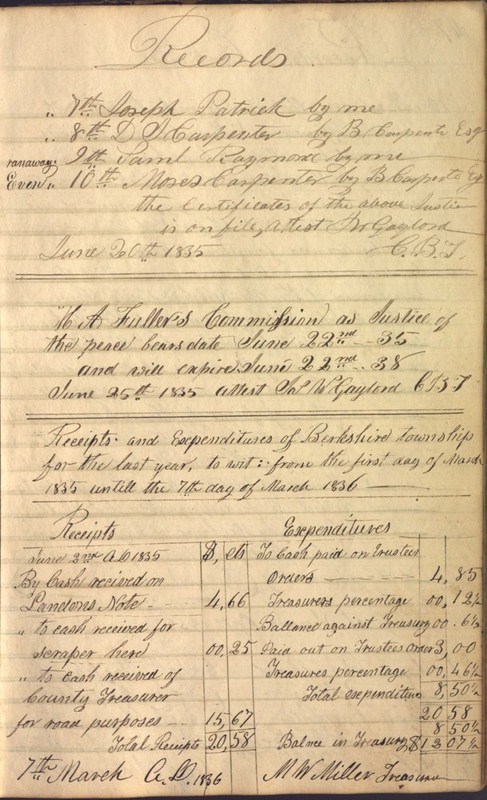 Records
" 7th Joseph Patrick by me
" 8th D S Carpenter by B Carpente Esq
ranaway: 9th Saml Raymond by me
Even " 10th Moses Carpenter by B Carpente Esq
the Certificates of the above Justice
is on file, Attest Jno W Gaylord
June 26th 1835 C. B. T.
H A Fuller's Commission as Justice of
the peace bears date June 22nd .. 35
and will expire June 22nd .. 38
June 25th 1835 attest Jno W Gaylord C B T
Receipts and Expenditures of Berkshire township
for the last year, to wit: from the first day of March
1835 untill the 7th day of March 1836
Receipts Expenditures
June 2nd A D 1835 $, cts To Cash paid on Trustees
By Cash recived on orders 4, 85
Landons Note 4,66 Treasurers percentage 00, 12½
" to cash received for Ballance against Treasury 00. 6½
scraper here 00,25 Paid out on Trustees Order 3, 00
" to cash received of Treasures percentage 00, 46½
County Treasurer Total expenditure 8, 50½
for road purposes 15,67 20 58
8 50½
Total Receipts 20,58 Balnce in Treasury $12 07½
7th March A. D. 1836 M W Miller Treasurer